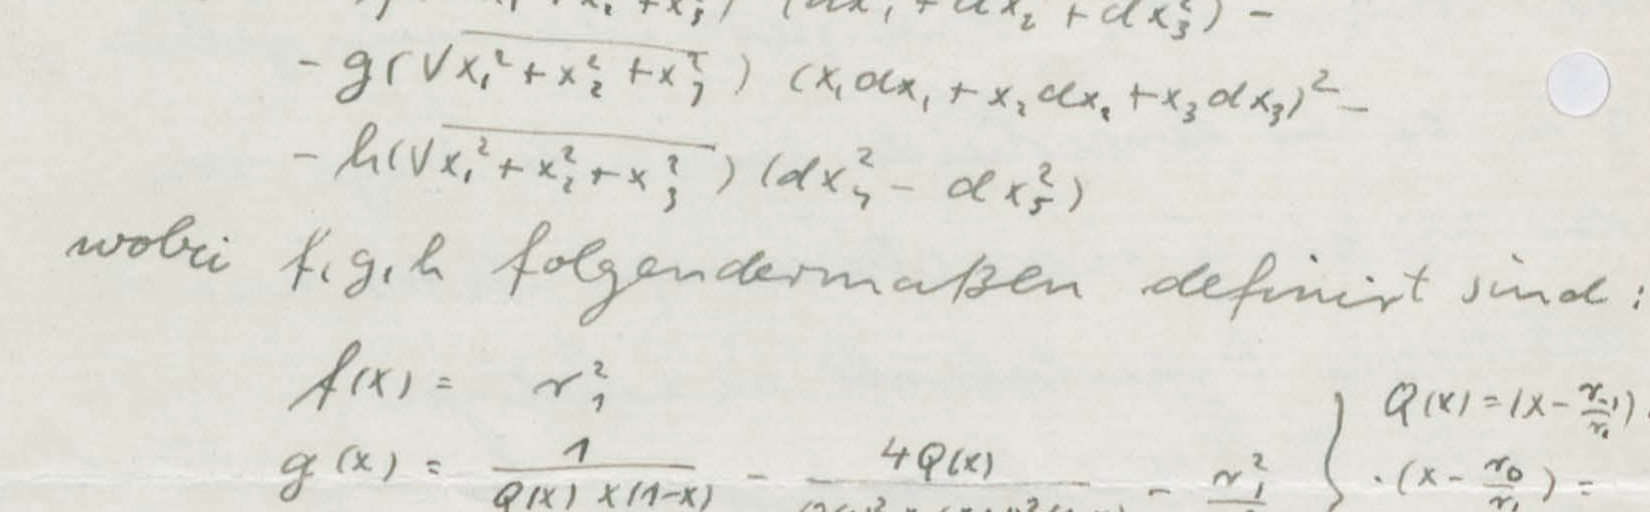 + x₃²) (dx₁² + dx₂² + dx₃²) −
− g(√x₁² + x₂² + x₃²) (x₁dx₁ + x₂dx₂ + x₃dx₃)² −
− h(√x₁² + x₂² + x₃²) (dx₄² − dx₅²)
wobei f, g, h folgendermaßen definirt sind:
f(x) = r₁² } Q(x) = (x − r₋₁/r₁) ·
g(x) = 1/(Q(x) x(1−x)) − 4Q(x) − r₁² · (x − r₀/r₁) =